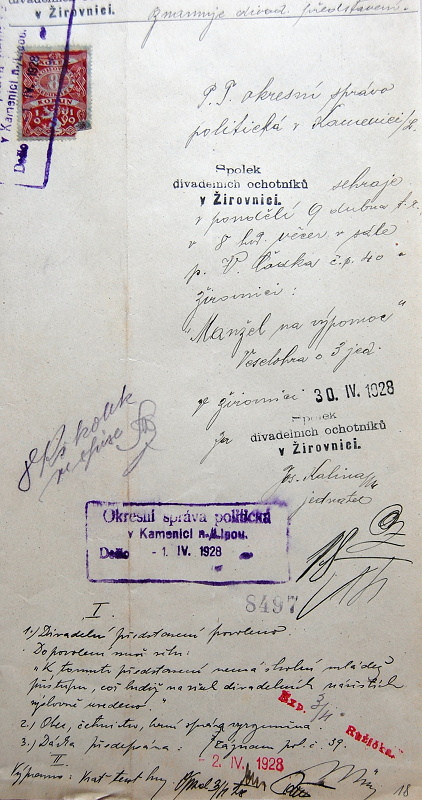 divadelních ochotníků
v Žirovnici.
Oznamuje divad. představení.
v Kamenici n./Lipou.
Došlo
1928
P. T. okresní správa
politická v Kamenici/L.
Spolek
divadelních ochotníků
v Žirovnici.
sehraje
v pondělí 9 dubna t. r.
v 8 hod. večer v sále
p. V. č. p. 40 v
Žirovnici:
"Manžel na výpomoc"
Veselohra o 3 jed.
V Žirovnici 30. IV. 1928
Za
Spolek
divadelních ochotníků
v Žirovnici.
Jos. Kalina
jednatel
8 Kč kolek
Okresní správa politická
v Kamenici n./Lipou.
Došlo - 1. IV. 1928
8497
I.
1.) Divadelní představení povoleno.
Do povolení
"K tomuto představení nemá školní mládež
přístupu, což budiž na všech divadelních návěštích
výslovně uvedeno."
2.) Obec, četnictvo, berní správa vyrozuměna.
3.) Dávka předepsána: Záznam pol. č. 39.
Exp. 3/4
Růžička
- 2. IV. 1928
II.
18